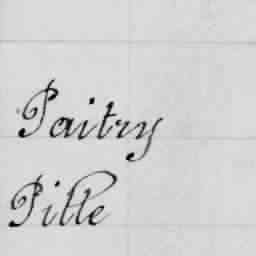 Paitry
Pille